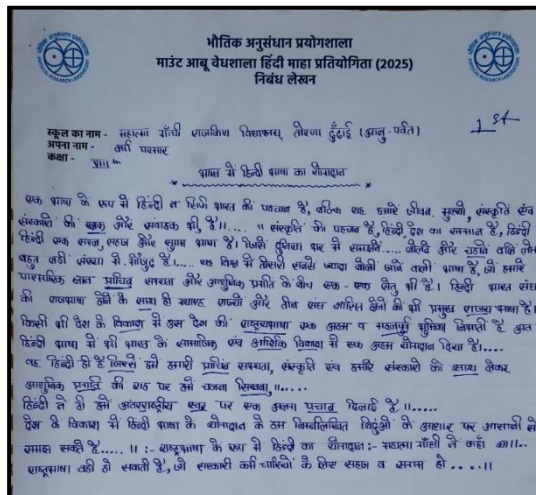 भौतिक अनुसंधान प्रयोगशाला
माउंट आबू वेधशाला हिंदी माह प्रतियोगिता (2025)
निबंध लेखन
1st
स्कूल का नाम - महात्मा गाँधी राजकिय विद्यालय तोरणा ढुँढाई (आबु-पर्वत)
अपना नाम - वर्षा परमार
कक्षा - VIII th
भारत में हिन्दी भाषा का योगदान
एक भाषा के रूप में हिन्दी न सिर्फ भारत की पहचान है, बल्कि यह हमारे जीवन, मुल्यो, संस्कृति एंव
संस्कारो की और संवाहक भी है।।.... ।। संस्कृति की पहचान है, हिन्दी देश का सम्मान है, हिन्दी
हिन्दी एक सरल, सहज और सुगम भाषा है। जिसे दुनिया भर में समझने.... बोलने और चहाने वाले लोग
बहुत बडी संख्या में मौजुद है।.... यह विश्व में तीसरी सबसे ज्यादा बोली जाने वाली भाषा है, जो हमारे
पारम्परिक ज्ञान प्राचिन सभ्यता और आधुनिक प्रगति के बीच एक-एक सेतु भी है। हिन्दी भारत संघ
की राजभाषा होने के साथ ही ग्यारह राज्यो और तीन संघ शासित क्षेत्रो की भी प्रमुख भाषा है।
किसी भी देश के विकास में उस देश की राष्ट्रभाषा एक अहम व भुमिका निभाती है अत
हिन्दी भाषा ने भी भारत के सामाजिक एंव आर्थिक विकास में एक अहम योगदान दिया है।....
वह हिन्दी ही है जिसने हमे हमारी प्राचिन सभ्यता, संस्कृति एंव हमारे संस्कारो को साथ लेकर
आधुनिक प्रगति की राह पर हमे चलना सिखाया,।।.....
हिन्दी ने ही हमे अंतरराष्ट्रीय स्तर पर एक दिलाई है।।.....
देश के विकास में हिन्दी भाषा के योगदान के हम निम्नलिखित बिंदुओ के आधार पर आसानी से
समझ सकते है..... ।। :- राष्ट्रभाषा के रूप में हिन्दी का योगदान:- महात्मा गाँधी ने कहाँ था।..
राष्ट्रभाषा वही हो सकती है, जो सरकारी कर्मचारियो के लिए सहज व सुगम हो ....।।